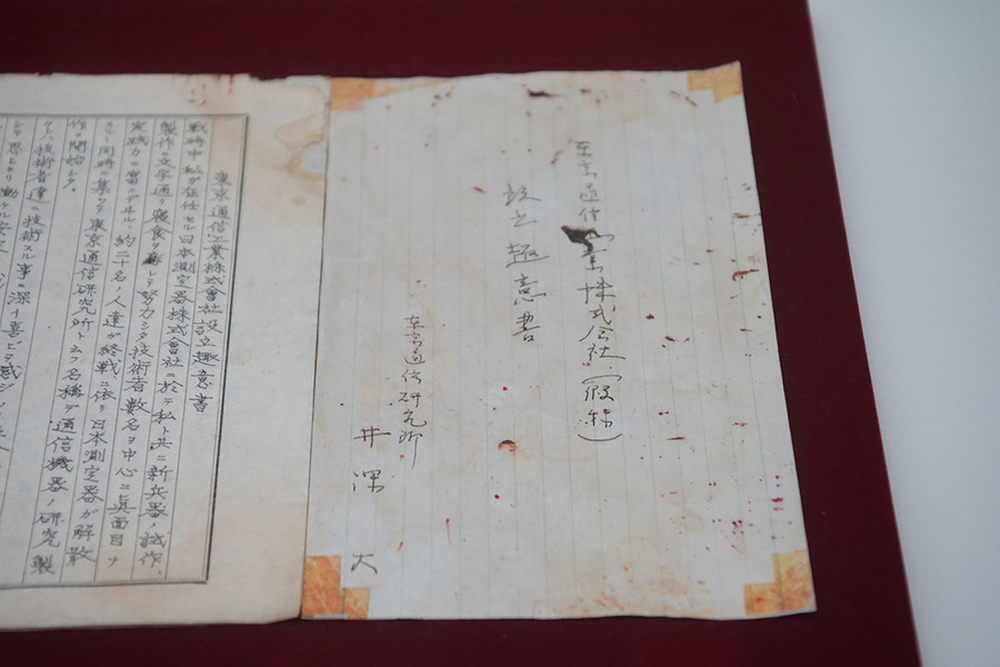 東京通信工業株式会社(假称)
設立趣意書
東京通信研究所
井深 大
東京通信工業株式會社設立趣意書
戦時中私が在任セル日本測定器株式會社ニ於テ私ト共ニ新兵器ノ試作、
製作ニ文字通リ寝食ヲ忘レテ努力シタ技術者數名ヲ中心ニ真面目ナ
実践力ニ富ンデヰル約二十名ノ人達が終戦ニ依リ日本測定器が解散
スルト同時ニ集ッテ東京通信研究所ト云フ名稱デ通信機器ノ研究製
作ヲ開始シタ。
技術者達ニ技術スル事ニ深イ喜ビヲ感ジ